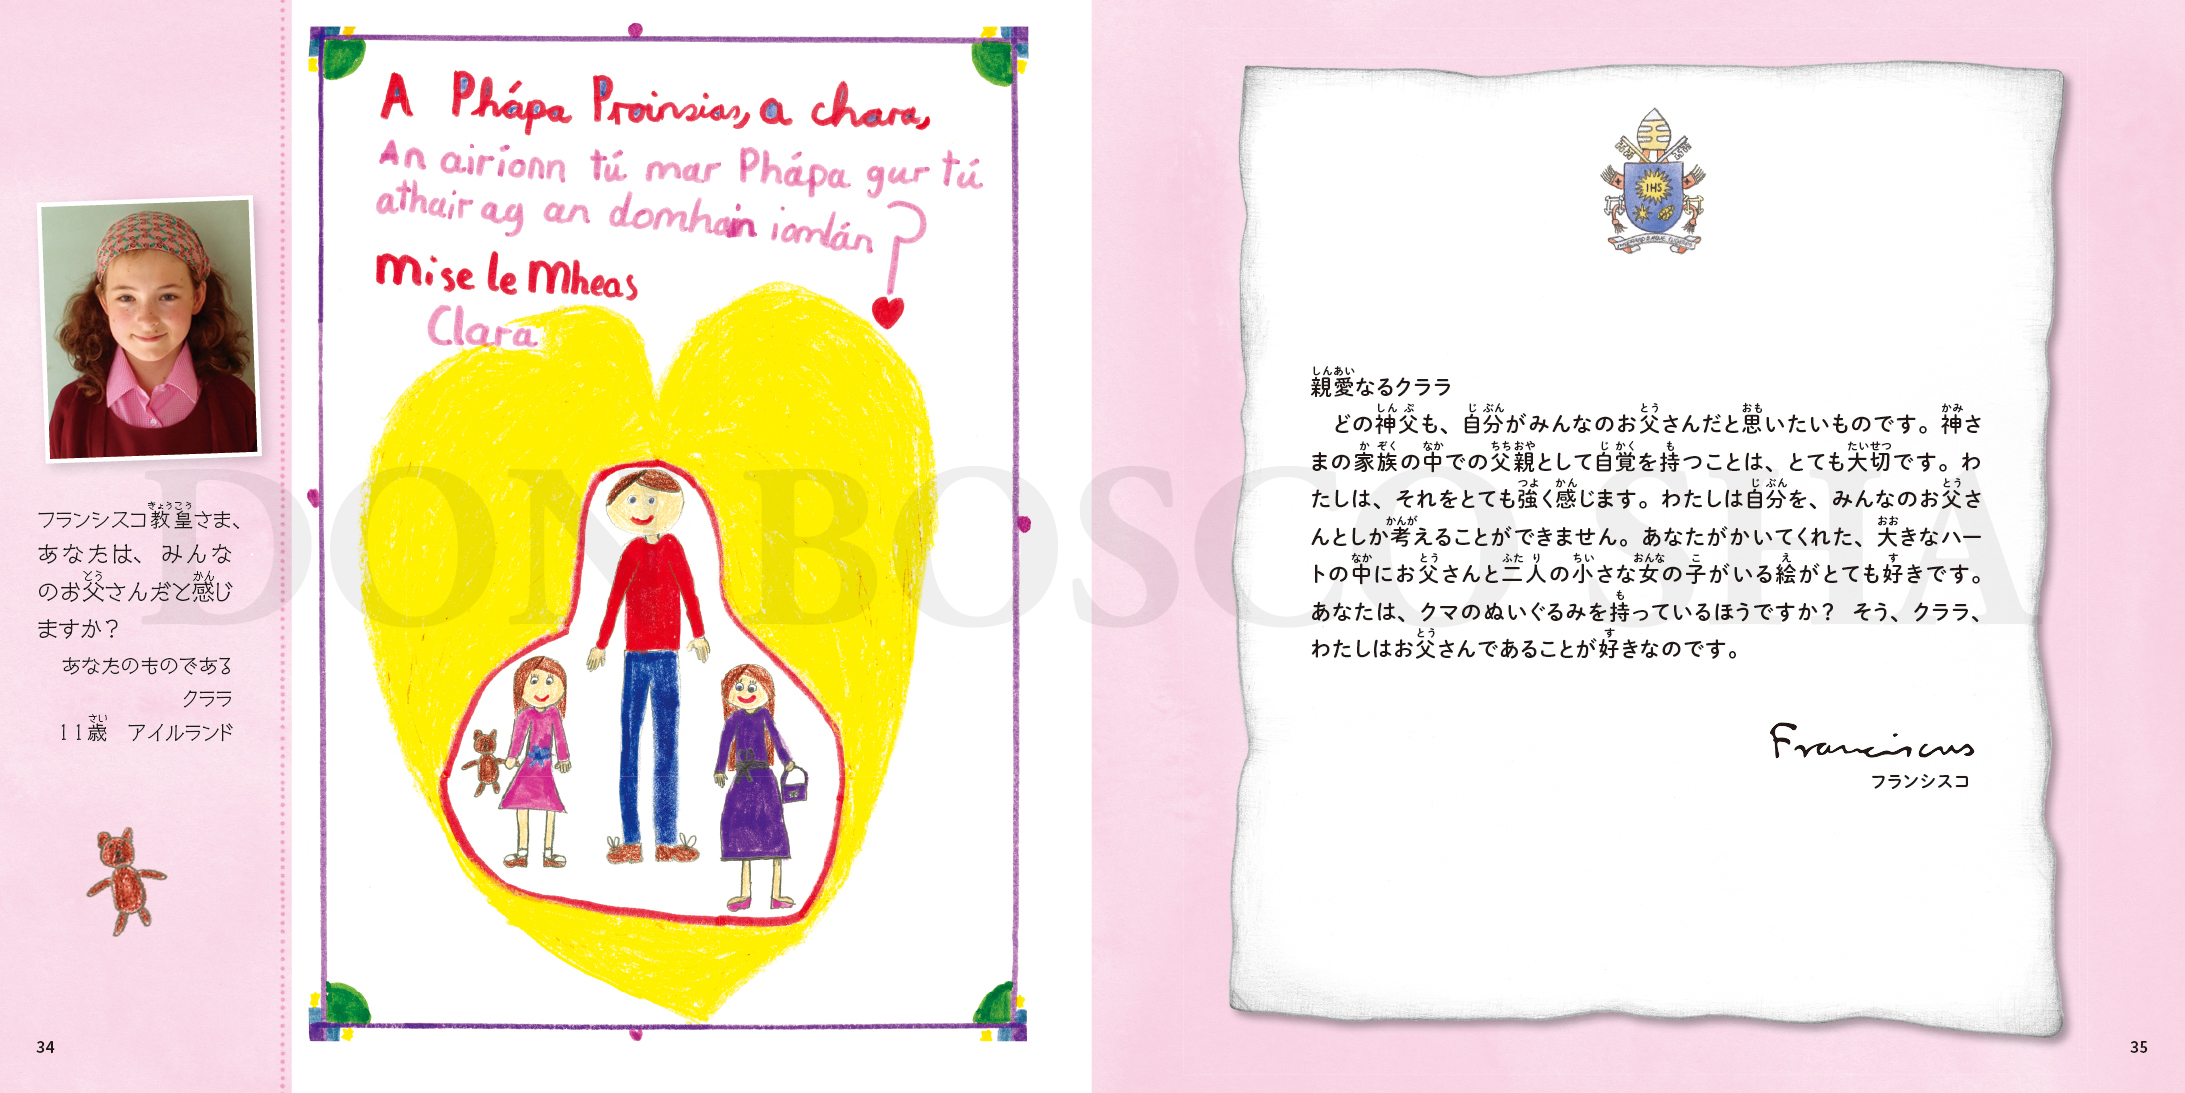 フランシスコ教皇さま、
あなたは、みんな
のお父さんだと感じ
ますか？
あなたのものである
クララ
11歳　アイルランド
34
A Phápa Proinsias, a chara,
An airíonn tú mar Phápa gur tú
athair ag an domhain iomlán?
Mise le Mheas
Clara
IHS
親愛なるクララ
どの神父も、自分がみんなのお父さんだと思いたいものです。神さ
まの家族の中での父親として自覚を持つことは、とても大切です。わ
たしは、それをとても強く感じます。わたしは自分を、みんなのお父さ
んとしか考えることができません。あなたがかいてくれた、大きなハー
トの中にお父さんと二人の小さな女の子がいる絵がとても好きです。
あなたは、クマのぬいぐるみを持っているほうですか？ そう、クララ、
わたしはお父さんであることが好きなのです。
Franciscus
フランシスコ
35
DON BOSCO SHA